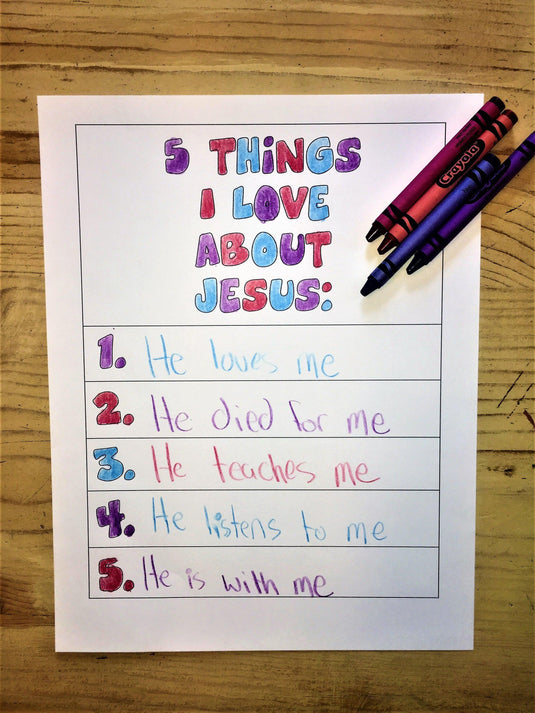 5 THiNGS
I LOVE
ABOUT
JESUS:
1. He loves me
2. He died for me
3. He teaches me
4. He listens to me
5. He is with me
Crayola